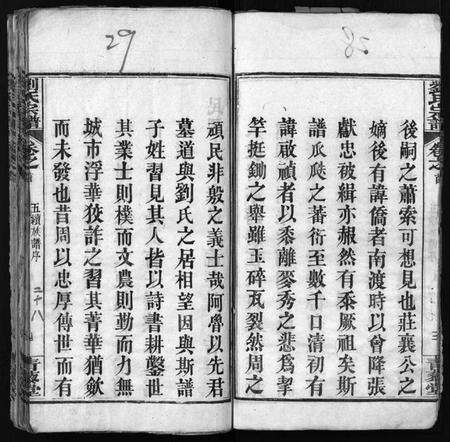 85
後嗣之蕭索可想見也莊襄公之
嫡後有諱僑者南渡時以曾降張
獻忠破緝亦赧然有忝厥祖矣斯
譜瓜瓞之蕃衍至數千口清初有
諱啟禎者以黍離麥秀之悲爲挈
竿挺鋤之舉雖玉碎瓦裂然周之
29
頑民非殷之義士哉阿魯以先君
墓道與劉氏之居相望因與斯譜
子姓習見其人皆以詩書耕鑿世
其業士則樸而文農則勤而力無
城市浮華狡詐之習其菁華猶歛
而未發也昔周以忠厚傳世而有
劉氏宗譜
卷之首
五續族譜序
二十八
青藜堂